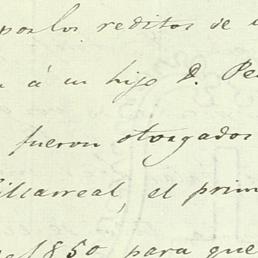 por los reditos de
á un hijo D. Pe
fueron otorgados
illarreal, el prim
el 1850 para que